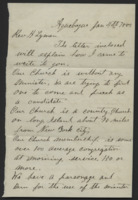 Rev. F Lyman
The letter inclosed
will explain how I came to
write to you.
Our Church is without any
Minister, we are trying to find
one to come and preach as
a candidate.
Our Church is a country Church
on Long Island about miles
from New York City.
Our Church membership is some
over our average congregation
at morning service, 100 or
more.
We have a parsonage and
for the use of the minister